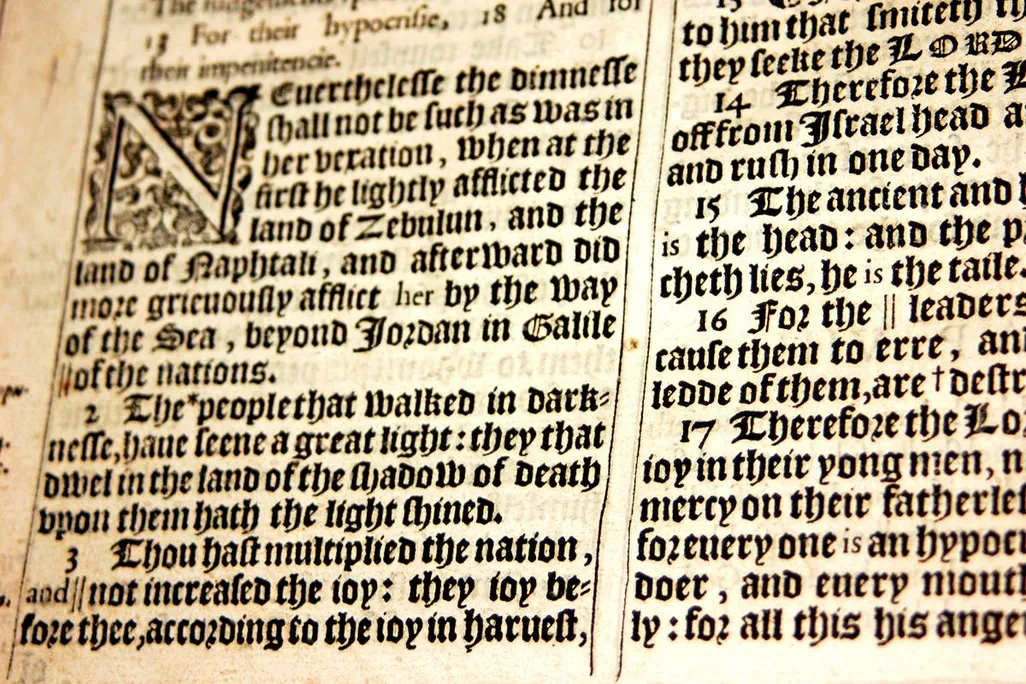 13 For their hypocrisie, 18 And for
their impenitencie.
NEuerthelesse the dimnesse
shall not be such as was in
her vexation, when at the
first he lightly afflicted the
land of Zebulun, and the
land of Naphtali, and afterward did
more grieuously afflict her by the way
of the Sea, beyond Jordan in Galile
||of the nations.
2 The *people that walked in dark=
nesse, haue seene a great light: they that
dwel in the land of the shadow of death
vpon them hath the light shined.
3 Thou hast multiplied the nation,
and || not increased the ioy: they ioy be=
fore thee, according to the ioy in haruest,
to him that smiteth
they seeke the LORD
14 Therefore the
off from Israel head
and rush in one day.
15 The ancient and
is the head: and the
cheth lies, he is the taile.
16 For the || leaders
cause them to erre,
ledde of them, are † destr
17 Therefore the
ioy in their yong men,
mercy on their
for euery one is an
doer, and euery
ly: for all this his